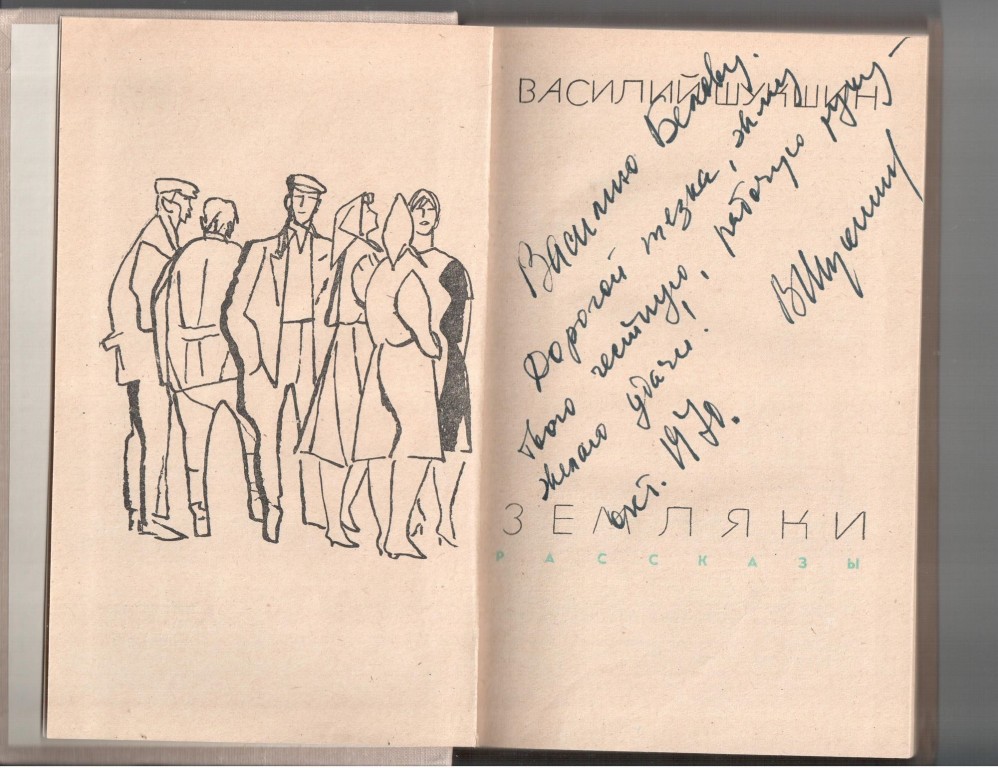 ВАСИЛИЙ ШУКШИН
Василию Белову.
Дорогой тезка, жму
твою честную, рабочую руку –
желаю удачи!
ВШукшин
окт. 1970.
ЗЕМЛЯКИ
РАССКАЗЫ